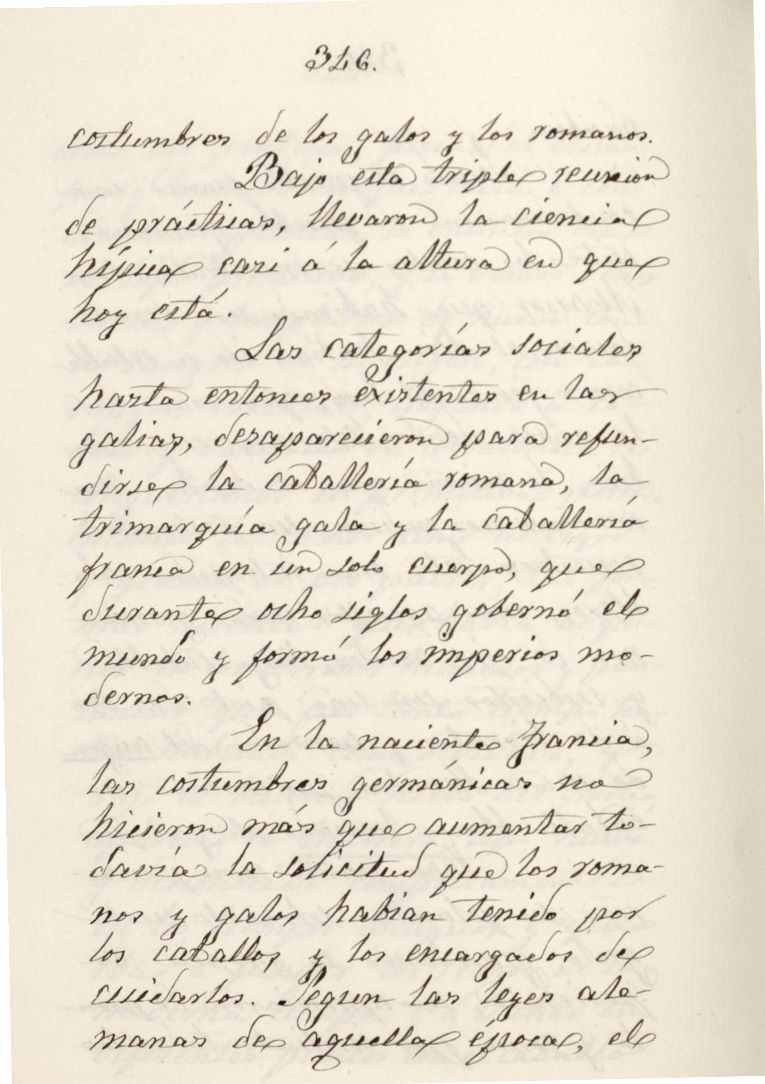 346.
costumbres de los galos y los romanos.
Bajo esta triple reunion
de prácticas, llevaron la ciencia
hípica casi á la altura en que
hoy está.
Las categorías sociales
hasta entonces existentes en las
galias, desaparecieron para refun-
dirse la caballería romana, la
trimarquía gala y la caballería
franca en un solo cuerpo, que
durante ocho siglos gobernó el
mundo y formó los imperios mo-
dernos.
En la naciente Francia,
las costumbres germánicas no
hicieron más que aumentar to-
davía la solicitud que los roma-
nos y galos habian tenido por
los caballos y los encargados de
cuidarlos. Segun las leyes ale-
manas de aquella época, el